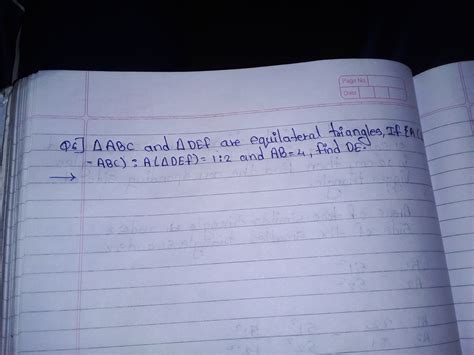 Page No.
Date
Q6] △ABC and △DEF are equilateral triangles, If [A(△
-ABC) : A(△DEF) = 1:2 and AB=4, find DE.
→